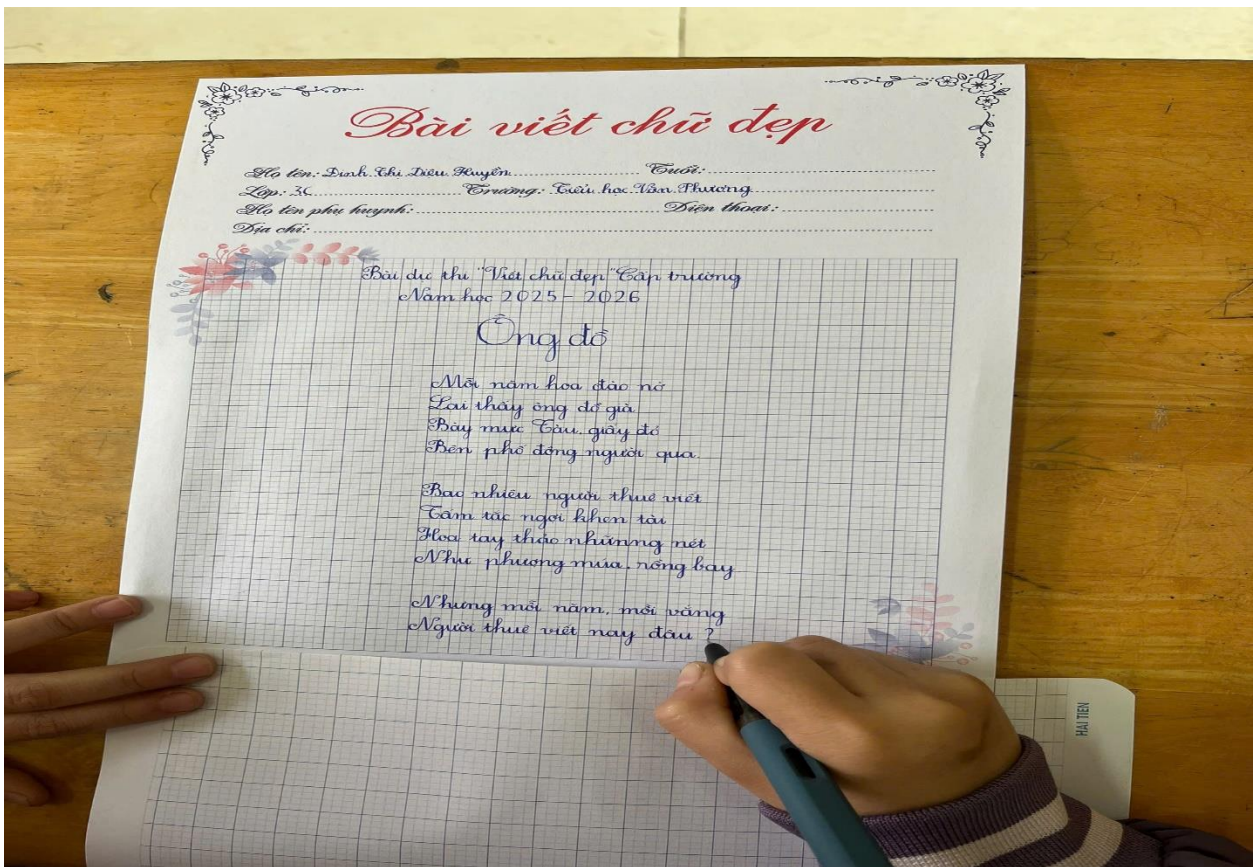 Bài viết chữ đẹp
Họ tên: Đinh Thị Diệu Huyền Tuổi:
Lớp: 3C Trường: Tiểu học Vân Phương
Họ tên phụ huynh: Điện thoại:
Địa chỉ:
Bài dự thi "Viết chữ đẹp" Cấp trường
Năm học 2025 - 2026
Ông đồ
Mỗi năm hoa đào nở
Lại thấy ông đồ già
Bày mực Tàu, giấy đỏ
Bên phố đông người qua.
Bao nhiêu người thuê viết
Tấm tắc ngợi khen tài
Hoa tay thảo nhữnng nét
Như phượng múa, rồng bay
Nhưng mỗi năm, mỗi vắng
Người thuê viết nay đâu ?
HẢI TIẾN